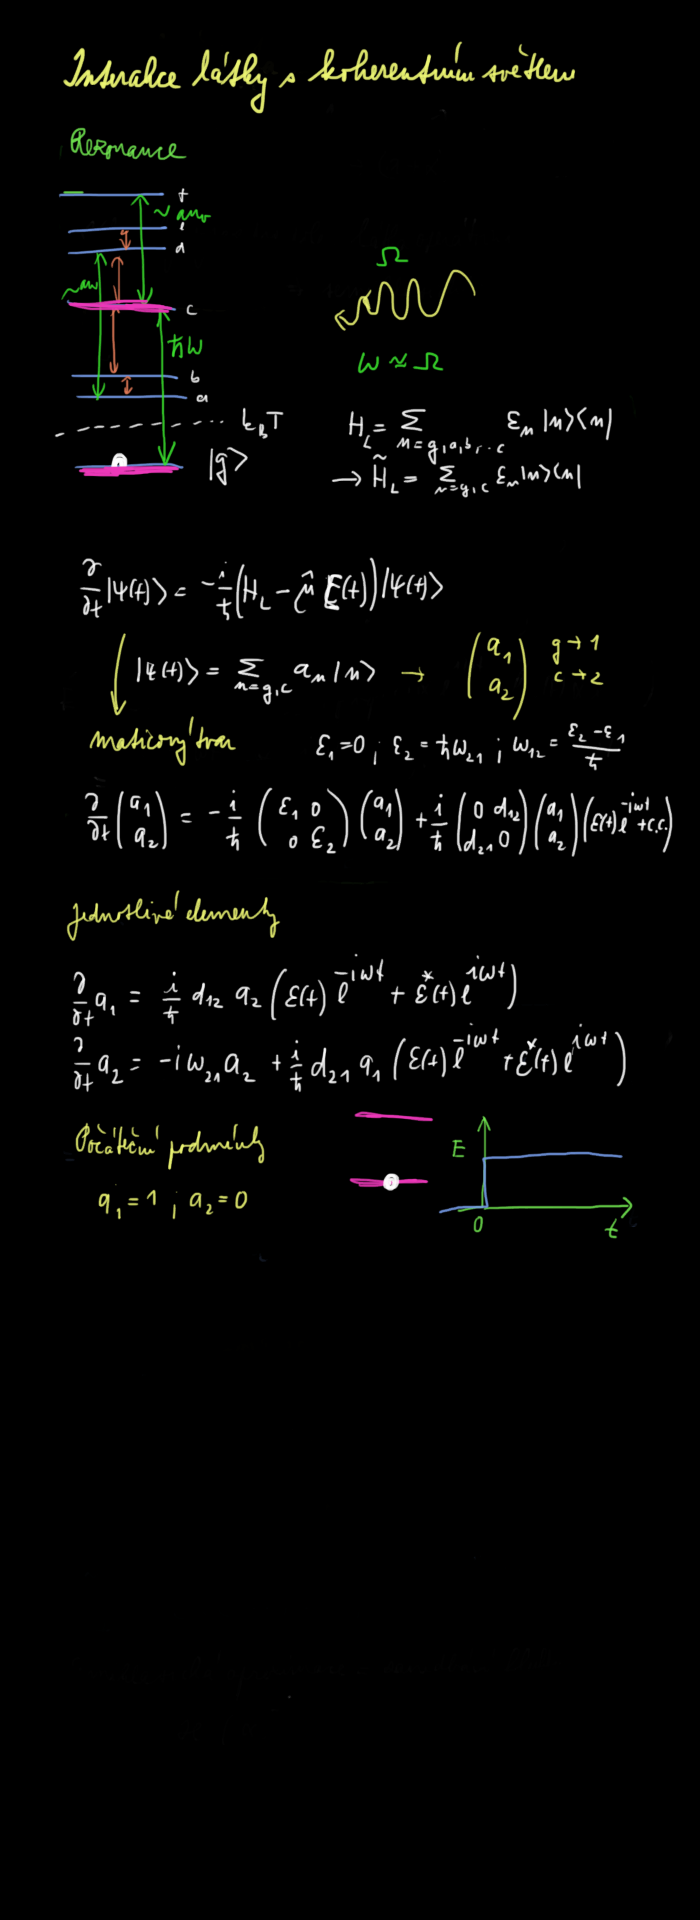 Interakce látky s koherentním světlem
Rezonance
f
e
d
c
ħω
b
a
k_B T
|g>
Ω
ω ≈ Ω
H_L = Σ_{n=g,a,b,..c} ε_n |n><n|
→ H̃_L = Σ_{n=g,c} ε_n |n><n|
∂/∂t |ψ(t)> = -i/ħ (H_L - μ̂ E(t)) |ψ(t)>
|ψ(t)> = Σ_{n=g,c} a_n |n> → (a_1 a_2) g → 1
c → 2
maticový tvar ε_1 = 0 ; ε_2 = ħω_21 ; ω_12 = (ε_2 - ε_1)/ħ
∂/∂t (a_1 a_2) = -i/ħ (ε_1 0 0 ε_2) (a_1 a_2) + i/ħ (0 d_12 d_21 0) (a_1 a_2) (ℰ(t) e^{-iωt} + c.c.)
jednotlivé elementy
∂/∂t a_1 = i/ħ d_12 a_2 (ℰ(t) e^{-iωt} + ℰ*(t) e^{iωt})
∂/∂t a_2 = -iω_21 a_2 + i/ħ d_21 a_1 (ℰ(t) e^{-iωt} + ℰ*(t) e^{iωt})
Počáteční podmínky
a_1 = 1 ; a_2 = 0
E
0
t